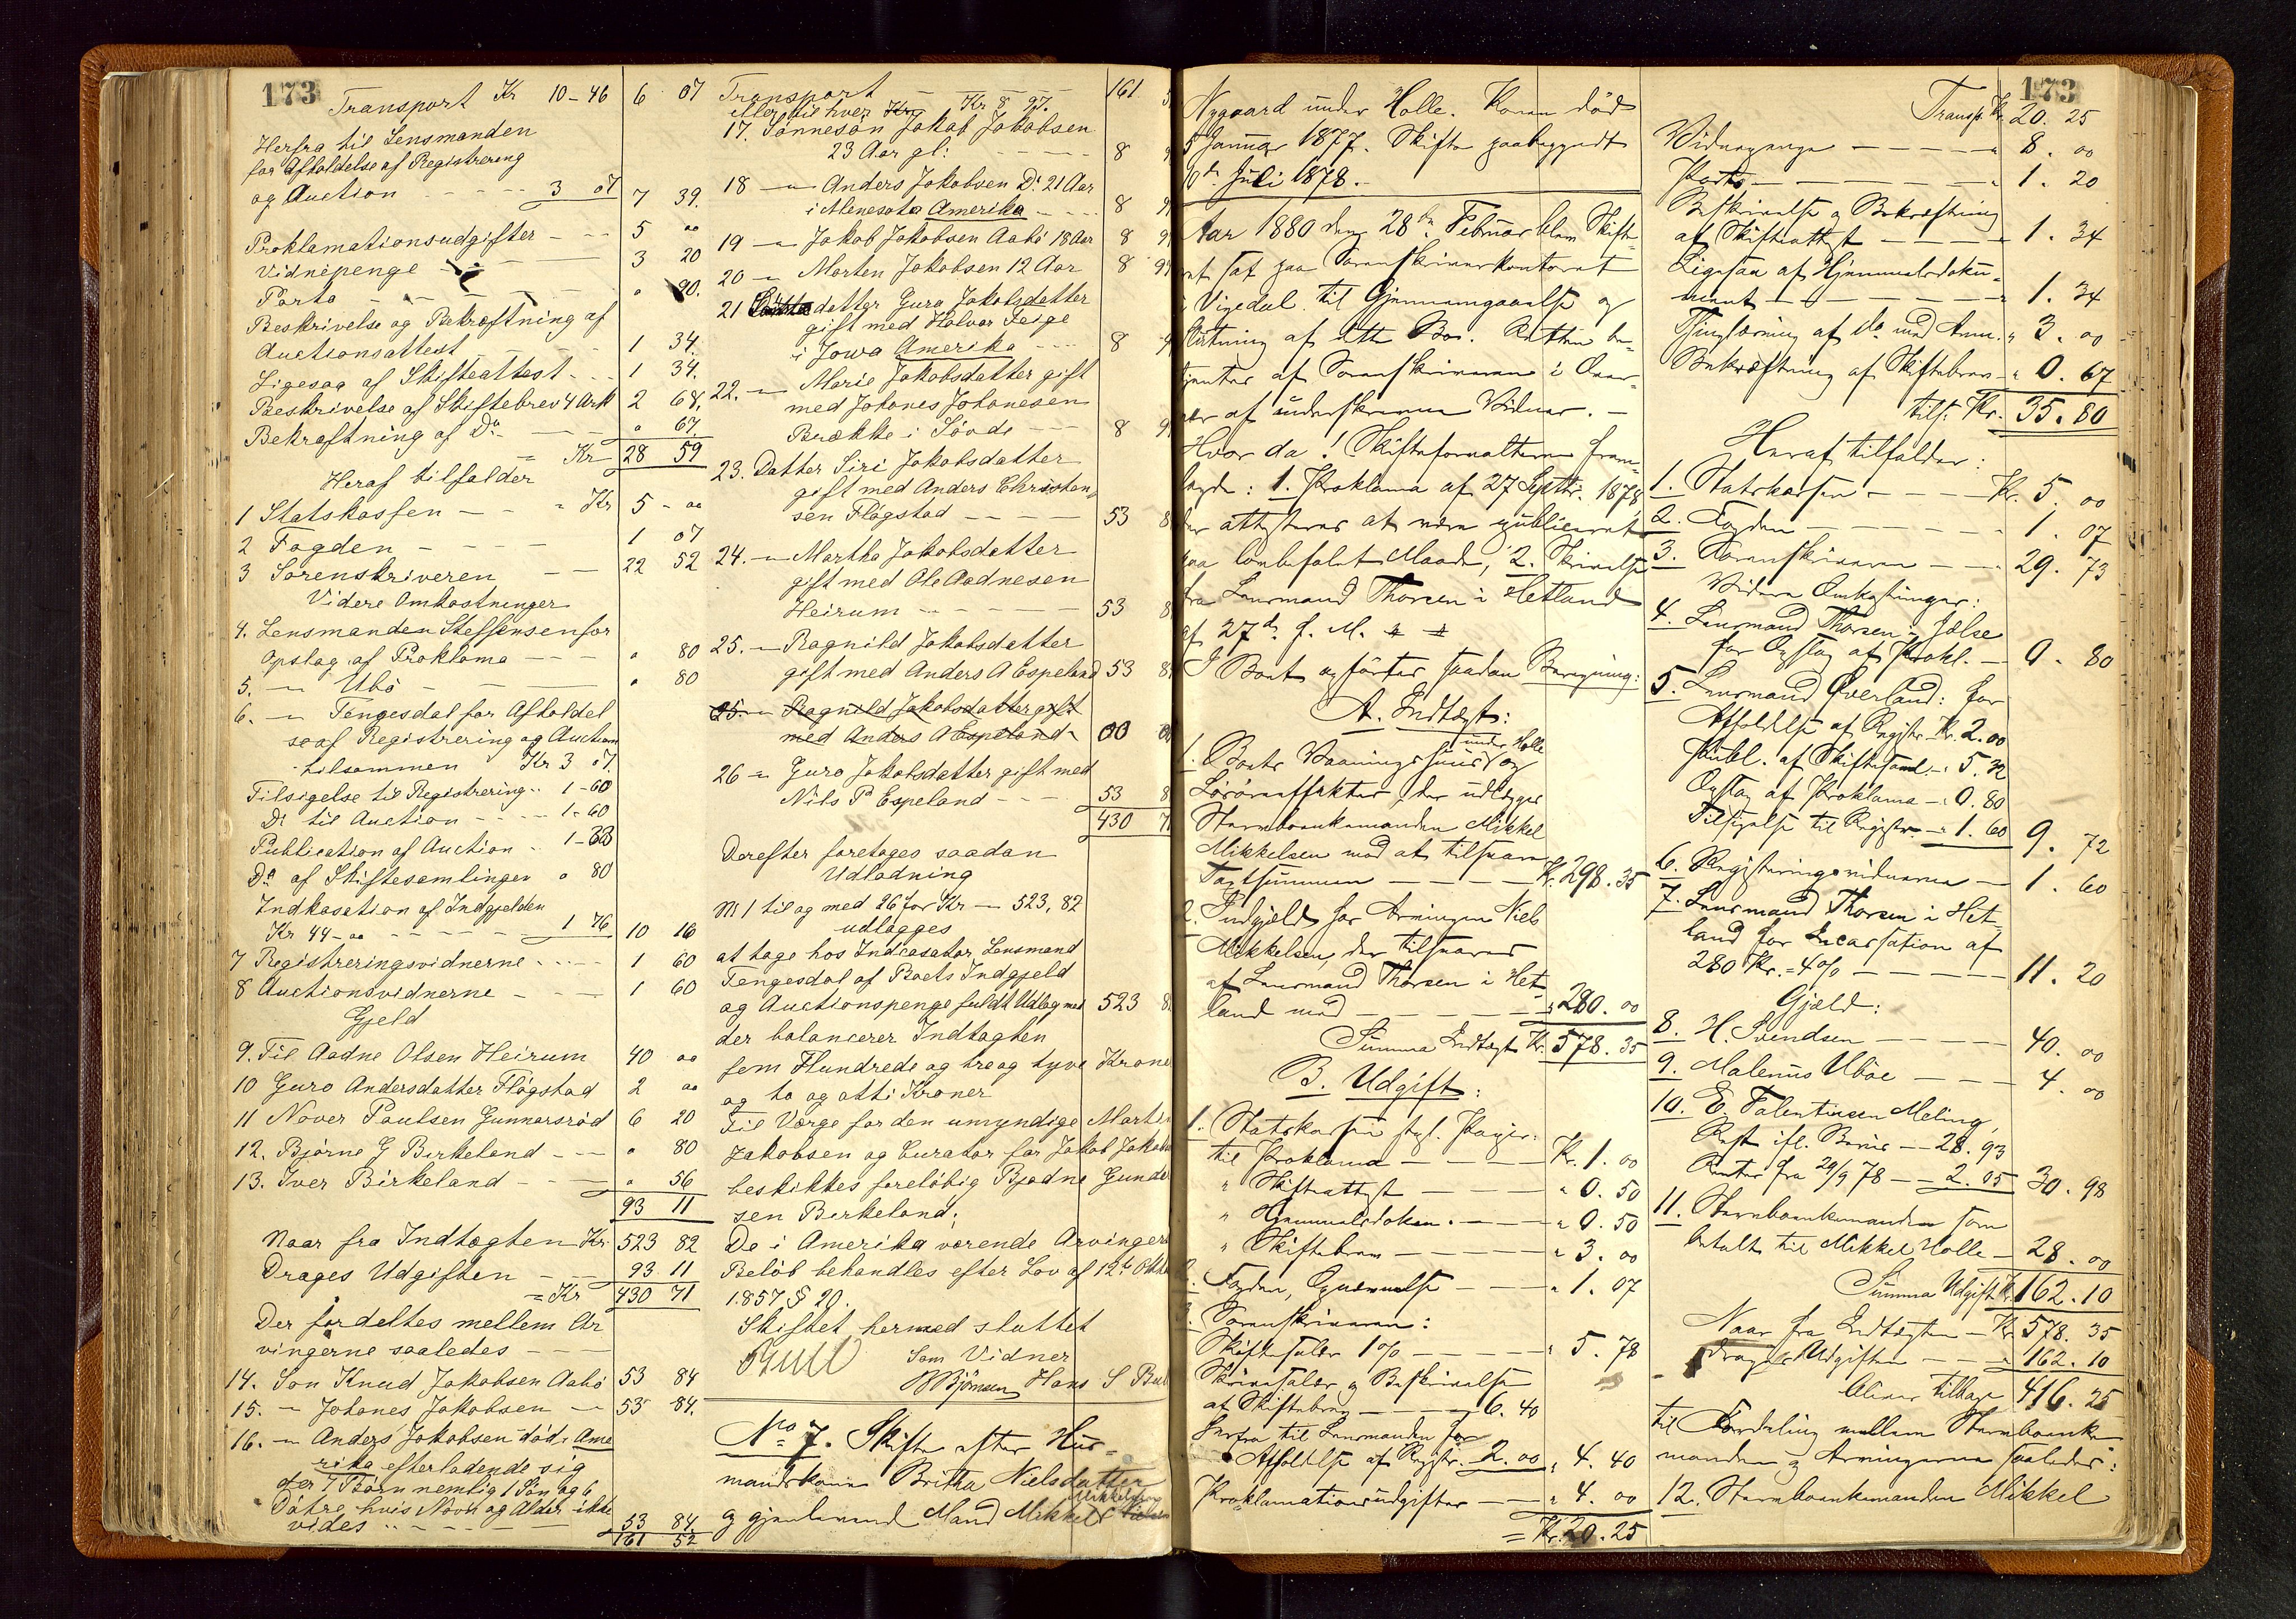 173
Transport Kr 10-46 6 07
Herfra til Lensmanden
for Afholdelse af Registrering
og Auction - - - - 3 07 7 39.
Proklamationsudgifter - - - 5 00
Vidnepenge - - - 3 20
Porto - - - - " 90.
Beskrivelse og Bekræftning af
Auctionsattest - - - 1 34.
Ligesaa af Skifteattest - - - 1 34.
Beskrivelse af Skiftebrev 4 Ark 2 68,
Bekræftning af Do - - - " 67.
= Kr 28 59
Heraf tilfalder
1 Statskassen - - = Kr 5 - 00
2 Fogden - - - - 1 07
3 Sorenskriveren - - 22 52
Videre Omkostninger
4. Lensmanden Steffensen for
Opslag af Proklama - - - " 80
5. -"- Ubø - - - " 80
6. -"- Tengesdal for Afholdel
se af Registrering og Auction
tilsammen Kr 3 07.
Tilsigelse til Registrering .. 1-60
Do til Auction - - - - 1-60
Publication af Auction . 1-33
Do af Skiftesamlinger " 80
Indkasation af Indgjelden
Kr 44-00 - - - - 1 76 10 16
7 Registreringsvidnerne - - - 1 60
8 Auctionsvidnerne - - - 1 60
Gjeld
9. Til Aadne Olsen Heirum 40 00
10 Guro Andersdatter Fløgstad 2 00
11 Nover Paulsen Gunnarsrød 6 20
12. Bjørne G Birkeland - - - " 80
13. Iver Birkeland - - - " 56
93 11
Naar fra Indtægten Kr 523 82
Drages Udgiften - - - 93 11
= Kr 430 71
Der fordeltes mellem Ar
vingerne saaledes - - -
14. Søn Knud Jakobsen Aabø 53 84
15. -"- Johanes Jakobsen - 53 84.
16. -"- Anders Jakobsen død i Ame
rika efterladende sig
der 7 Børn nemlig 1 Søn og 6
Døtre hvis Navn og Alder ikke
vides .. - - - - 53 84
161 52
Transport - - - 161 5
eller til hver Kr 8 97.
17. Sønnesøn Jakob Jakobsen
23 Aar gl: - - - - 8 9
18 -"- Anders Jakobsen Do 21 Aar
i Menesota Amerika - - - 8 9
19 -"- Jakob Jakobsen Aabø 18 Aar 8 9
20 -"- Morten Jakobsen 12 Aar 8 9
21 datter Guro Jakobsdatter
gift med Halvor Feige
i Jowa Amerika - - - 8 9
22. -"- Marie Jakobsdatter gift
med Johanes Johanesen
Brække i Søvde - - - 8 9
23. Datter Siri Jakobsdatter
gift med Anders Christen
sen Fløgstad - - - - 53 8
24. -"- Martha Jakobsdatter
gift med Ole Aadnesen
Heirum - - - - 53 8
25. -"- Ragnild Jakobsdatter
gift med Anders A Espeland 53 8
25. -"- Ragnild Jakobsdatter gift
med Anders A Espeland 00 00
26 -"- Guro Jakobsdatter gift med
Nils P Espeland - - - 53 8
430 7
Derefter foretages saadan
Udlodning
No 1 til og med 26 for Kr - 523, 82
udlægges
at tage hos Indcasator Lensmand
Tengesdal af Boets Indgjeld
og Auctionspenge fuldt Udlæg med 523 8
der balancerer Indtægten
fem Hundrede og treog tyve Krone
og to og otti Kroner
Til Værge for den umyndige Morten
Jakobsen og Curator for Jakob Jakob
beskikkes foreløbig Bjødne Gunder
sen Birkeland;
De i Amerika værende Arvingers
Beløb behandles efter Lov af 12te Oktb
1857 § 20.
Skiftet hermed sluttet
Som Vidner
B Bjørnsen Hans S
No 7. Skifte efter Hus-
mandskone Britha Nielsdatter
og gjenlevend Mand Mikkel Mikkelsen
173
Nygaard under Holle. Konen død
5 Januar 1877. Skifte paabegyndt
10de Juli 1878.
Aar 1880 den 28de Februar blev Skifte-
ret sat paa Sorenskriverkontoret
i Vigedal til Gjennemgaaelse og
Slutning af dette Bo. Retten be-
tjentes af Sorenskriveren i Over-
vær af underskrevne Vidner. -
Hvor da! Skifteforvalteren frem-
lagde: 1. Proklama af 27 Septbr. 1878,
der attesteres at være publiceret
paa lovbefalet Maade; 2. Skrivelse
fra Lensmand Thorsen i Hetland
af 27de f. M.
I Boet opførtes saadan Beregning:
A. Indtægt:
1. Boets Vaaningshuus under Holle og
Løsøreeffekter, der udlægges
Stervboenkemanden Mikkel
Mikkelsen mod at tilsvare
Taxtsummen - - - Kr. 298.35
2. Indgjeld hos Arvingen Niels
Mikkelsen, der tilsvares
af Lensmand Thorsen i Het-
land med - - - - " 280.00
Summa Indtægt Kr. 578.35
B. Udgift:
1. Statskassen stpl. Papir:
til Proklama - - - - Kr. 1.00
" Skifteattest - - - " 0.50
" Hjemmelsdokum. - - - " 0.50
" Skiftebrev - - - - " 3.00
2. Fogden, Opnævnelse - - " 1.07
3. Sorenskriveren:
Skiftesalær 1% - - - " 5.78
Skrivesalær og Beskrivelse
af Skiftebrev - - - 6.40
herfra til Lensmanden for
Afholdelse af Registr. 2.00 " 4.40
Proklamationsudgifter - - - " 4.00
= Kr. 20.25
Transp. Kr. 20.25
Vidnepenge - - - - " 8.00
Porto - - - - " 1.20
Beskrivelse og Bekræftning
af Skifteattest - - - " 1.34
Ligesaa af Hjemmelsdoku-
ment - - - - " 1.34
Thinglæsning af do med Ann. " 3.00
Bekræftning af Skiftebrev - " 0.67
tils. Kr. 35.80
Heraf tilfalder:
1. Statskassen - - - Kr. 5.00
2. Fogden - - - - 1.07
3. Sorenskriveren - - - 29.73
Videre Omkostninger:
4. Lensmand Thorsen i Jælse
for Opslag af Prokl. - 0.80
5. Lensmand Qverland: for
Afholdelse af Registr. Kr. 2.00
Publ. af Skiftesaml. - " 5.32
Opslag af Proklama - " 0.80
Tilsigelse til Registr. - " 1.60 9.72
6. Registreringsvidnerne - 1.60
7. Lensmand Thorsen i Het-
land for Incassation af
280 Kr. = 4% - - - - 11.20
Gjæld:
8. H. Svendsen - - - - 40.00
9. Malenus Uböe - - - 4.00
10. E. Falentinsen Meling,
Rest ifl. Bevis - 28.93
Renter fra 29/9 78 - - 2.05 30.98
11. Stervboenkemanden som
betalt til Mikkel Holle - 28.00
Summa Udgift Kr. 162.10
Naar fra Indtægten - Kr. 578.35
drages Udgiften - - - " 162.10
bliver tilbage 416.25
til Fordeling mellem Stervboenke-
manden og Arvingerne saaledes:
12. Stervboenkemanden Mikkel